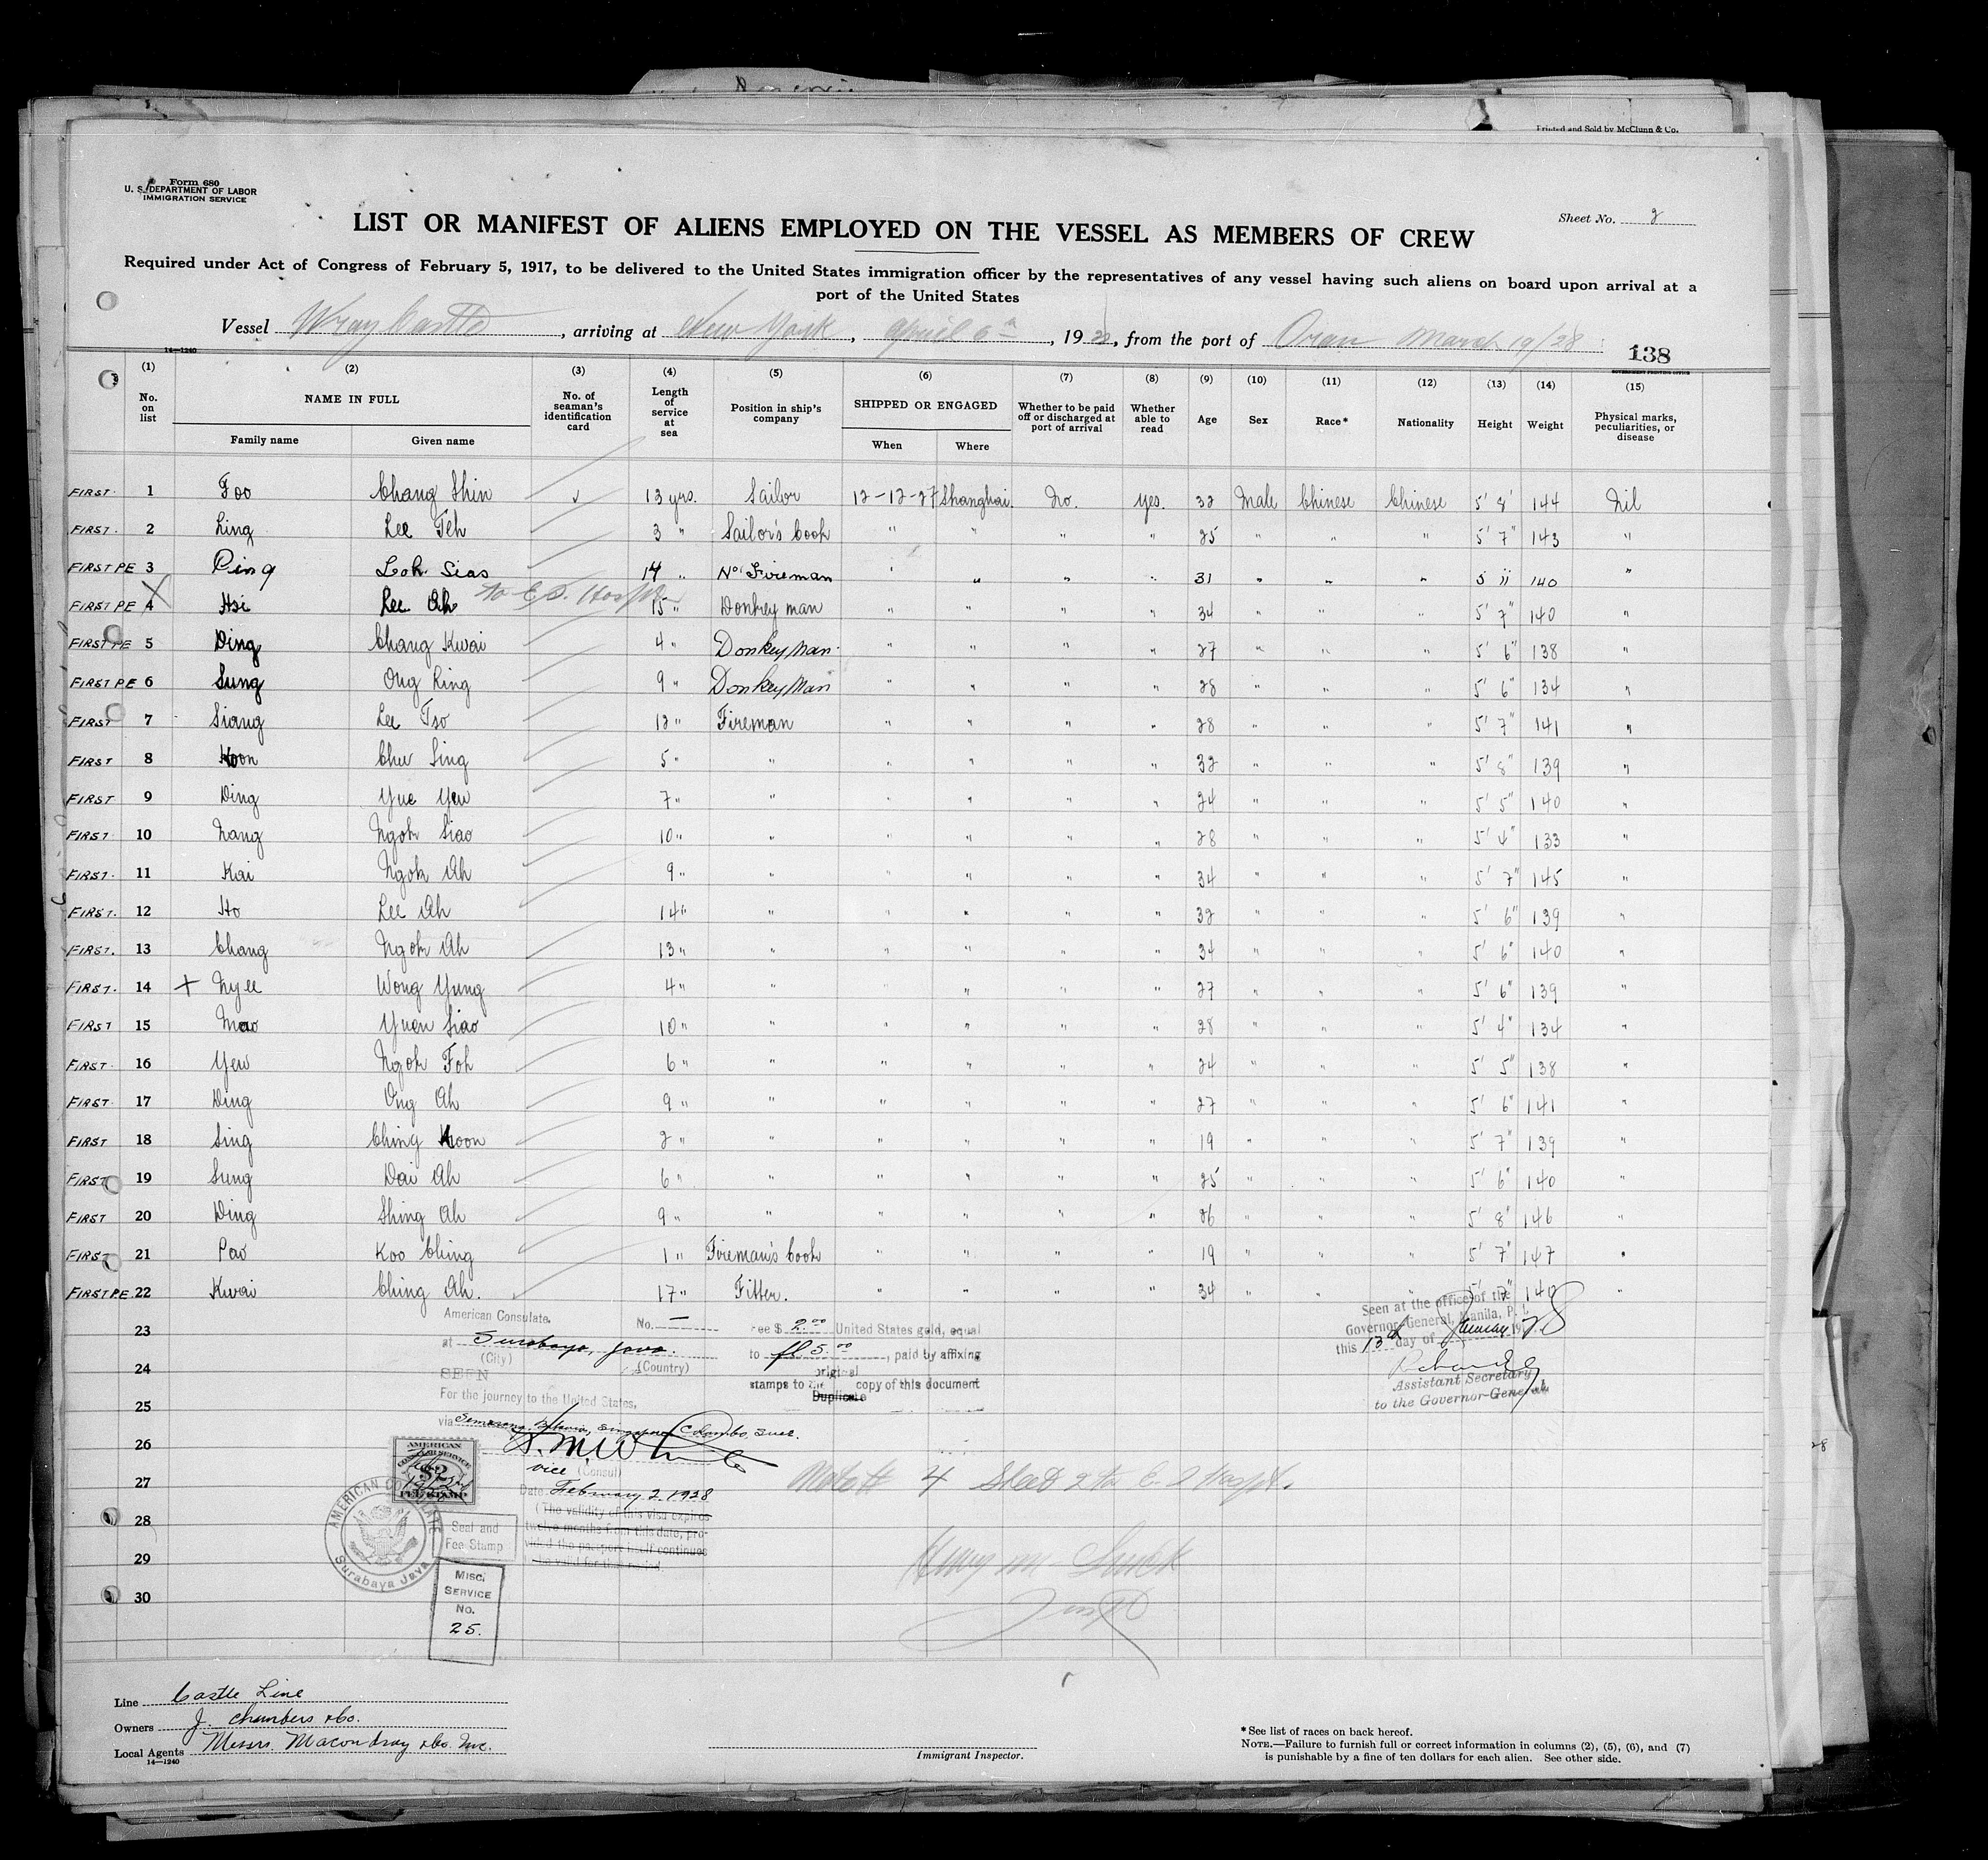 Printed and Sold by McClunn & Co.
Form 680
U. S. DEPARTMENT OF LABOR
IMMIGRATION SERVICE
Sheet No. 2
LIST OR MANIFEST OF ALIENS EMPLOYED ON THE VESSEL AS MEMBERS OF CREW
Required under Act of Congress of February 5, 1917, to be delivered to the United States immigration officer by the representatives of any vessel having such aliens on board upon arrival at a
port of the United States
Vessel Wray Castle, arriving at New York, April 6th, 1928, from the port of Oran March 19/28
14—1240
138
GOVERNMENT PRINTING OFFICE
(1) (2) (3) (4) (5) (6) (7) (8) (9) (10) (11) (12) (13) (14) (15)
No. on list NAME IN FULL Family name Given name No. of seaman's identification card Length of service at sea Position in ship's company SHIPPED OR ENGAGED When Where Whether to be paid off or discharged at port of arrival Whether able to read Age Sex Race* Nationality Height Weight Physical marks, peculiarities, or disease
FIRST 1 Foo Chang Shin ✓ 13 yrs. Sailor 12-12-27 Shanghai. No. yes. 32 Male Chinese Chinese 5' 8' 144 Nil
FIRST. 2 Ling Lee Teh 3 " Sailor's Cook " " " " 25 " " " 5' 7" 143 "
FIRST PE 3 Ping Loh Siao 14 " No 1 Fireman " " " " 31 " " " 5 11 140 "
FIRST PE 4 Hsi Lee Ah to E.I. Hospl. 15 " Donkey man " " " " 34 " " " 5' 7" 140 "
FIRST PE 5 Ding Chang Kwai 4 " Donkey Man " " " " 27 " " " 5' 6" 138 "
FIRST PE 6 Sung Ong Ling 9 " Donkey Man " " " " 28 " " " 5' 6" 134 "
FIRST 7 Siang Lee Tso 12 " Fireman " " " " 28 " " " 5' 7" 141 "
FIRST 8 Koon Chu Sing 5 " " " " " " 32 " " " 5' 8" 139 "
FIRST 9 Ding Yue Yew 7 " " " " " " 24 " " " 5' 5" 140 "
FIRST 10 Nang Ngoh Siao 10 " " " " " " 28 " " " 5' 4" 133 "
FIRST. 11 Kai Ngoh Ah 9 " " " " " " 34 " " " 5' 7" 145 "
FIRST. 12 Ho Lee Ah 14 " " " " " " 32 " " " 5' 6" 139 "
FIRST. 13 Chang Ngoh Ah 13 " " " " " " 34 " " " 5' 6" 140 "
FIRST. 14 + Nyee Wong Yung 4 " " " " " " 27 " " " 5' 6" 139 "
FIRST 15 Mao Yuen Siao 10 " " " " " " 28 " " " 5' 4" 134 "
FIRST. 16 Yew Ngoh Foh 6 " " " " " " 24 " " " 5' 5" 138 "
FIRST. 17 Ding Ong Ah 9 " " " " " " 27 " " " 5' 6" 141 "
FIRST 18 Sing Ching Koon 2 " " " " " " 19 " " " 5' 7" 139 "
FIRST 19 Sung Dai Ah 6 " " " " " " 25 " " " 5' 6" 140 "
FIRST 20 Ding Shing Ah 9 " " " " " " 26 " " " 5' 8" 146 "
FIRST 21 Pao Koo Ching 1 " Fireman's Cook " " " " 19 " " " 5' 7" 147 "
FIRST PE. 22 Kwai Ching Ah. 17 " Fitter. " " " " 34 " " " 5' 7" 140 "
23
24
25
26
27
28
29
30
American Consulate.
No. —
at Surabaya, Java.
(City) (Country)
SEEN
For the journey to the United States,
via Semarang, Batavia, Singapore, Colombo, Suez.
vice (Consul)
Date February 2, 1928
(The validity of this visa expires
twelve months from this date, pro-
vided the passport itself continues
to be valid for that period.
Fee $ 2.00 United States gold, equal
to fl 5.00, paid by affixing
original
stamps to the copy of this document
Duplicate
Seen at the office of the
Governor-General, Manila, P. I.
this 13th day of January 1928
Assistant Secretary
to the Governor-General
AMERICAN
CONSULAR SERVICE
$2
FEE STAMP
AMERICAN CONSULATE
Surabaya Java
Seal and
Fee Stamp
MISC.
SERVICE
No.
25.
4 Sheet 2 to E I Hospt.
Line Castle Line
Owners J. Chambers & Co.
Local Agents Messrs. Macondray & Co. Inc.
14—1240
Immigrant Inspector.
* See list of races on back hereof.
NOTE.—Failure to furnish full or correct information in columns (2), (5), (6), and (7)
is punishable by a fine of ten dollars for each alien. See other side.